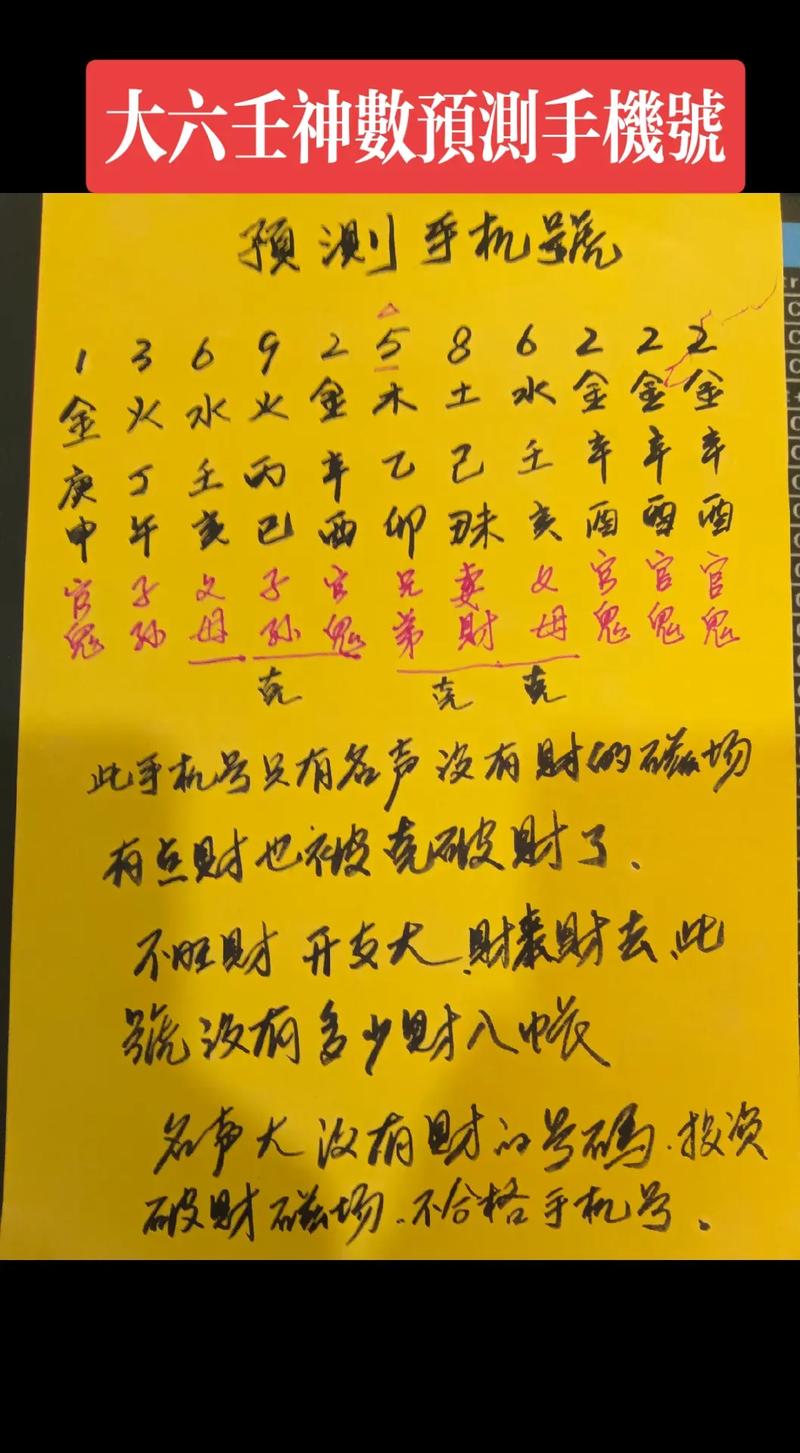 大六壬神數預測手機號
預測手机號
1 3 6 9 2 5 8 6 2 2 2
金 火 水 火 金 木 土 水 金 金 金
庚 丁 壬 丙 辛 乙 己 壬 辛 辛 辛
申 午 亥 巳 酉 卯 丑未 亥 酉 酉 酉
官鬼 子孙 父母 子孙 官鬼 兄弟 妻財 父母 官鬼 官鬼 官鬼
克 克 克
此手机号只有名声没有財的磁场
有点財也被克破財了.
不旺財 开支大.財来財去.此
號没有多少財入帐
名声大没有財的号码.投资
破財磁场.不合格手机号.